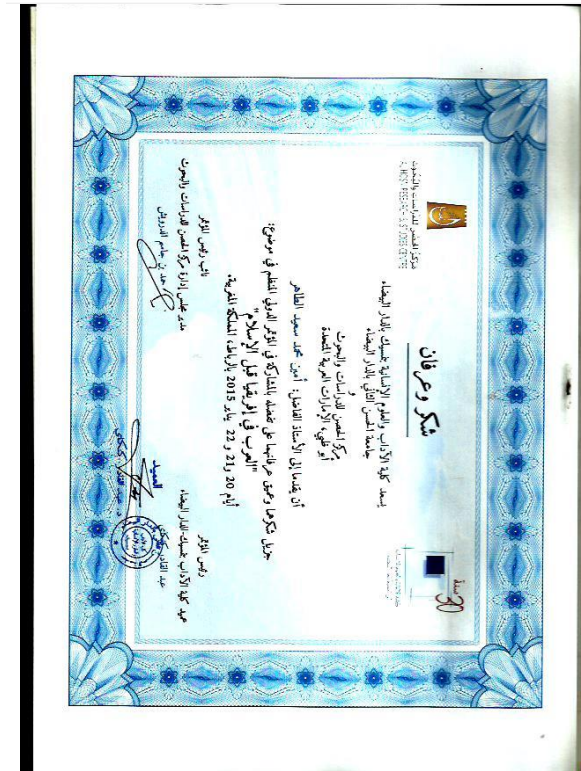 مركز الحصن للدراسات والبحوث
AL HOSN RESEARCH & STUDIES CENTRE
30 سنة
شكر وعرفان
يسعد كلية الآداب والعلوم الإنسانية بنمسيك بالدار البيضاء
جامعة الحسن الثاني بالدار البيضاء
و
مركز الحصن للدراسات والبحوث
أبو ظبي، الإمارات العربية المتحدة
أن يقدما إلى الأستاذ الفاضل: أمين محمد سعيد الطاهر
جزيل شكرهما وعميق عرفانهما على تفضله بالمشاركة في المؤتمر الدولي المنظم في موضوع:
"العرب في إفريقيا قبل الإسلام"
أيام 20 و 21 و 22 يناير 2015 بالرباط، المملكة المغربية.
رئيس المؤتمر
عميد كلية الآداب بنمسيك-الدار البيضاء
عبد القادر
العميد
نائب رئيس المؤتمر
مدير مجلس إدارة مركز الحصن للدراسات والبحوث
حمد بن جاسم الدرويش